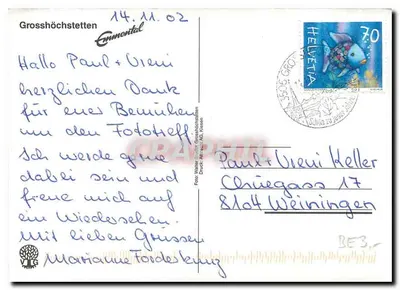 Grosshöchstetten
Emmental
14.11.02
Hallo Paul + Vreni
herzlichen Dank
für euer Bemühen
um den Fototreff.
Ich werde gerne
dabei sein und
freue mich auf
ein Wiedersehen.
Mit lieben Grüssen
Marianne
HELVETIA
70
Paul + Vreni Keller
17
8104 Weiningen
BE 3.-